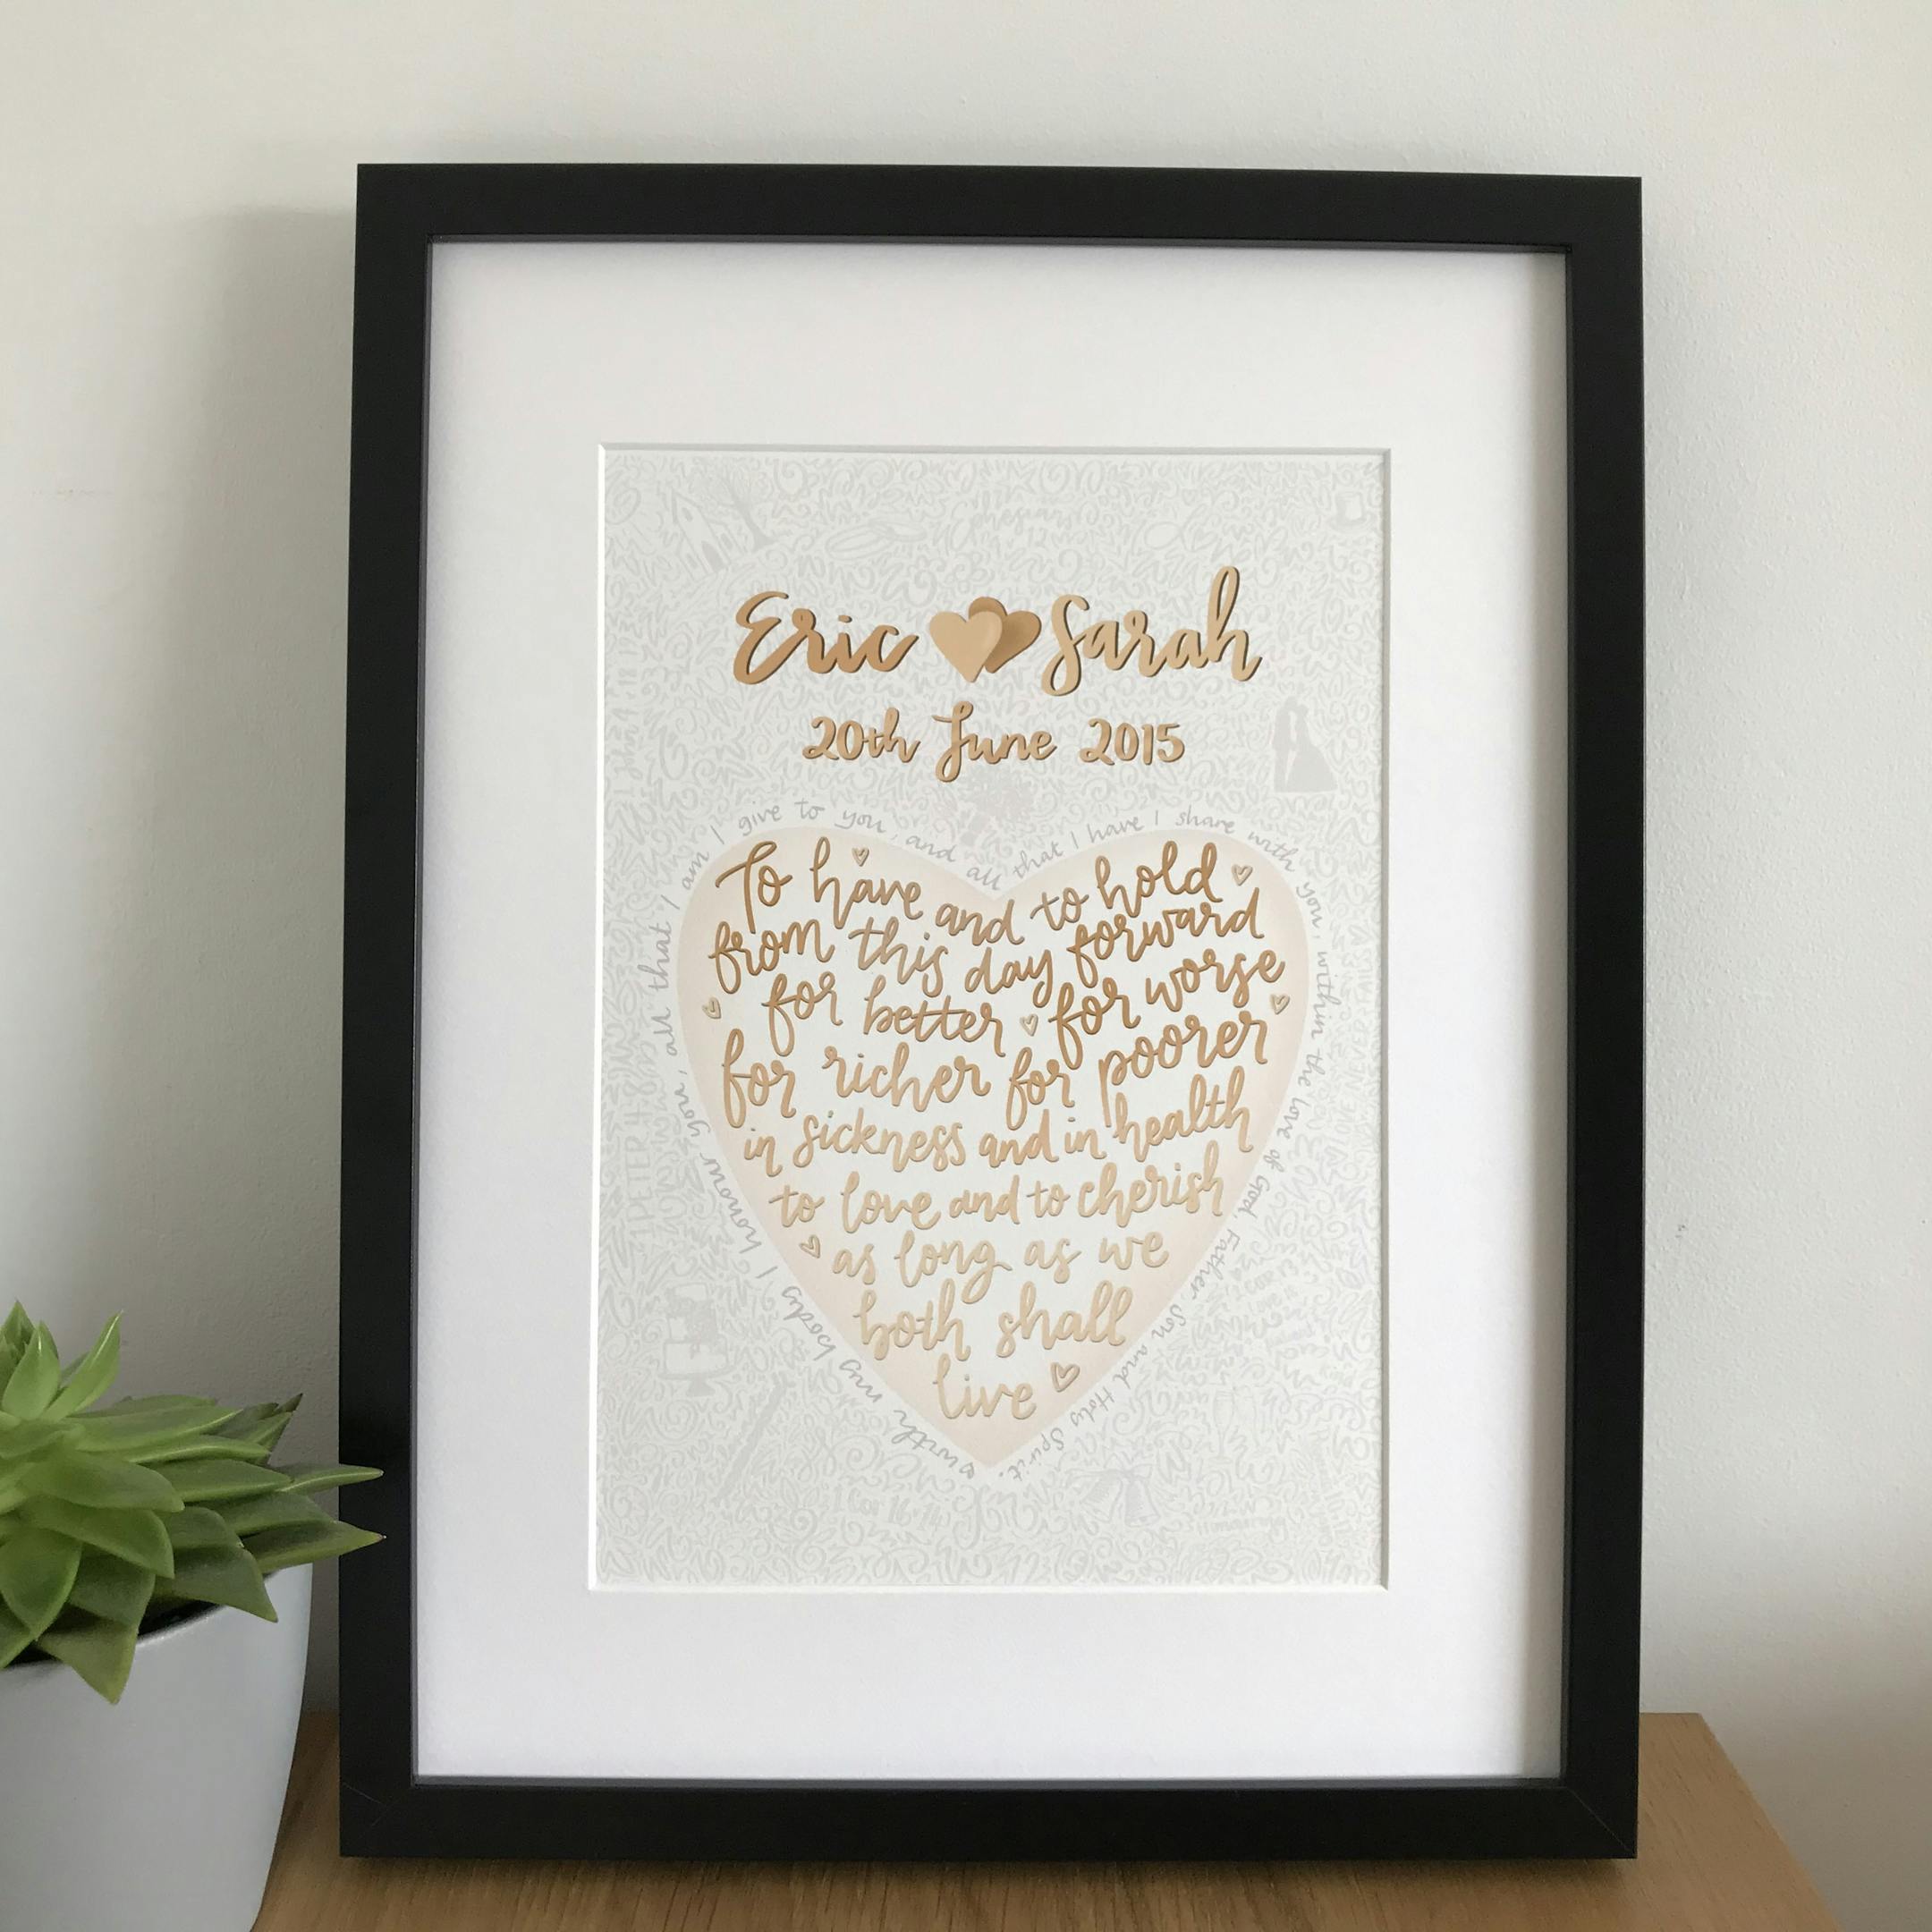 Eric Sarah
20th June 2015
To have and to hold
from this day forward
for better for worse
for richer for poorer
in sickness and in health
to love and to cherish
as long as we
both shall
live
with my body I honour you, all that I am I give to you, and all that I have I share with you, within the love of God, Father Son and Holy Spirit.
1 PETER 4:8
LOVE NEVER FAILS
1 Cor 16:14